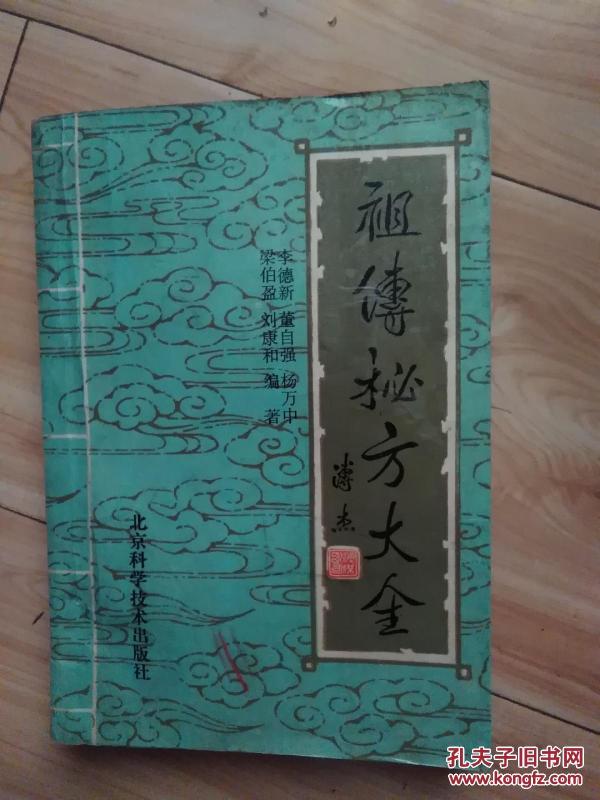 祖傳秘方大全
溥杰
李德新 董自强 杨万中
梁伯盈 刘康和 编著
北京科学技术出版社
孔夫子旧书网
www.kongfz.com